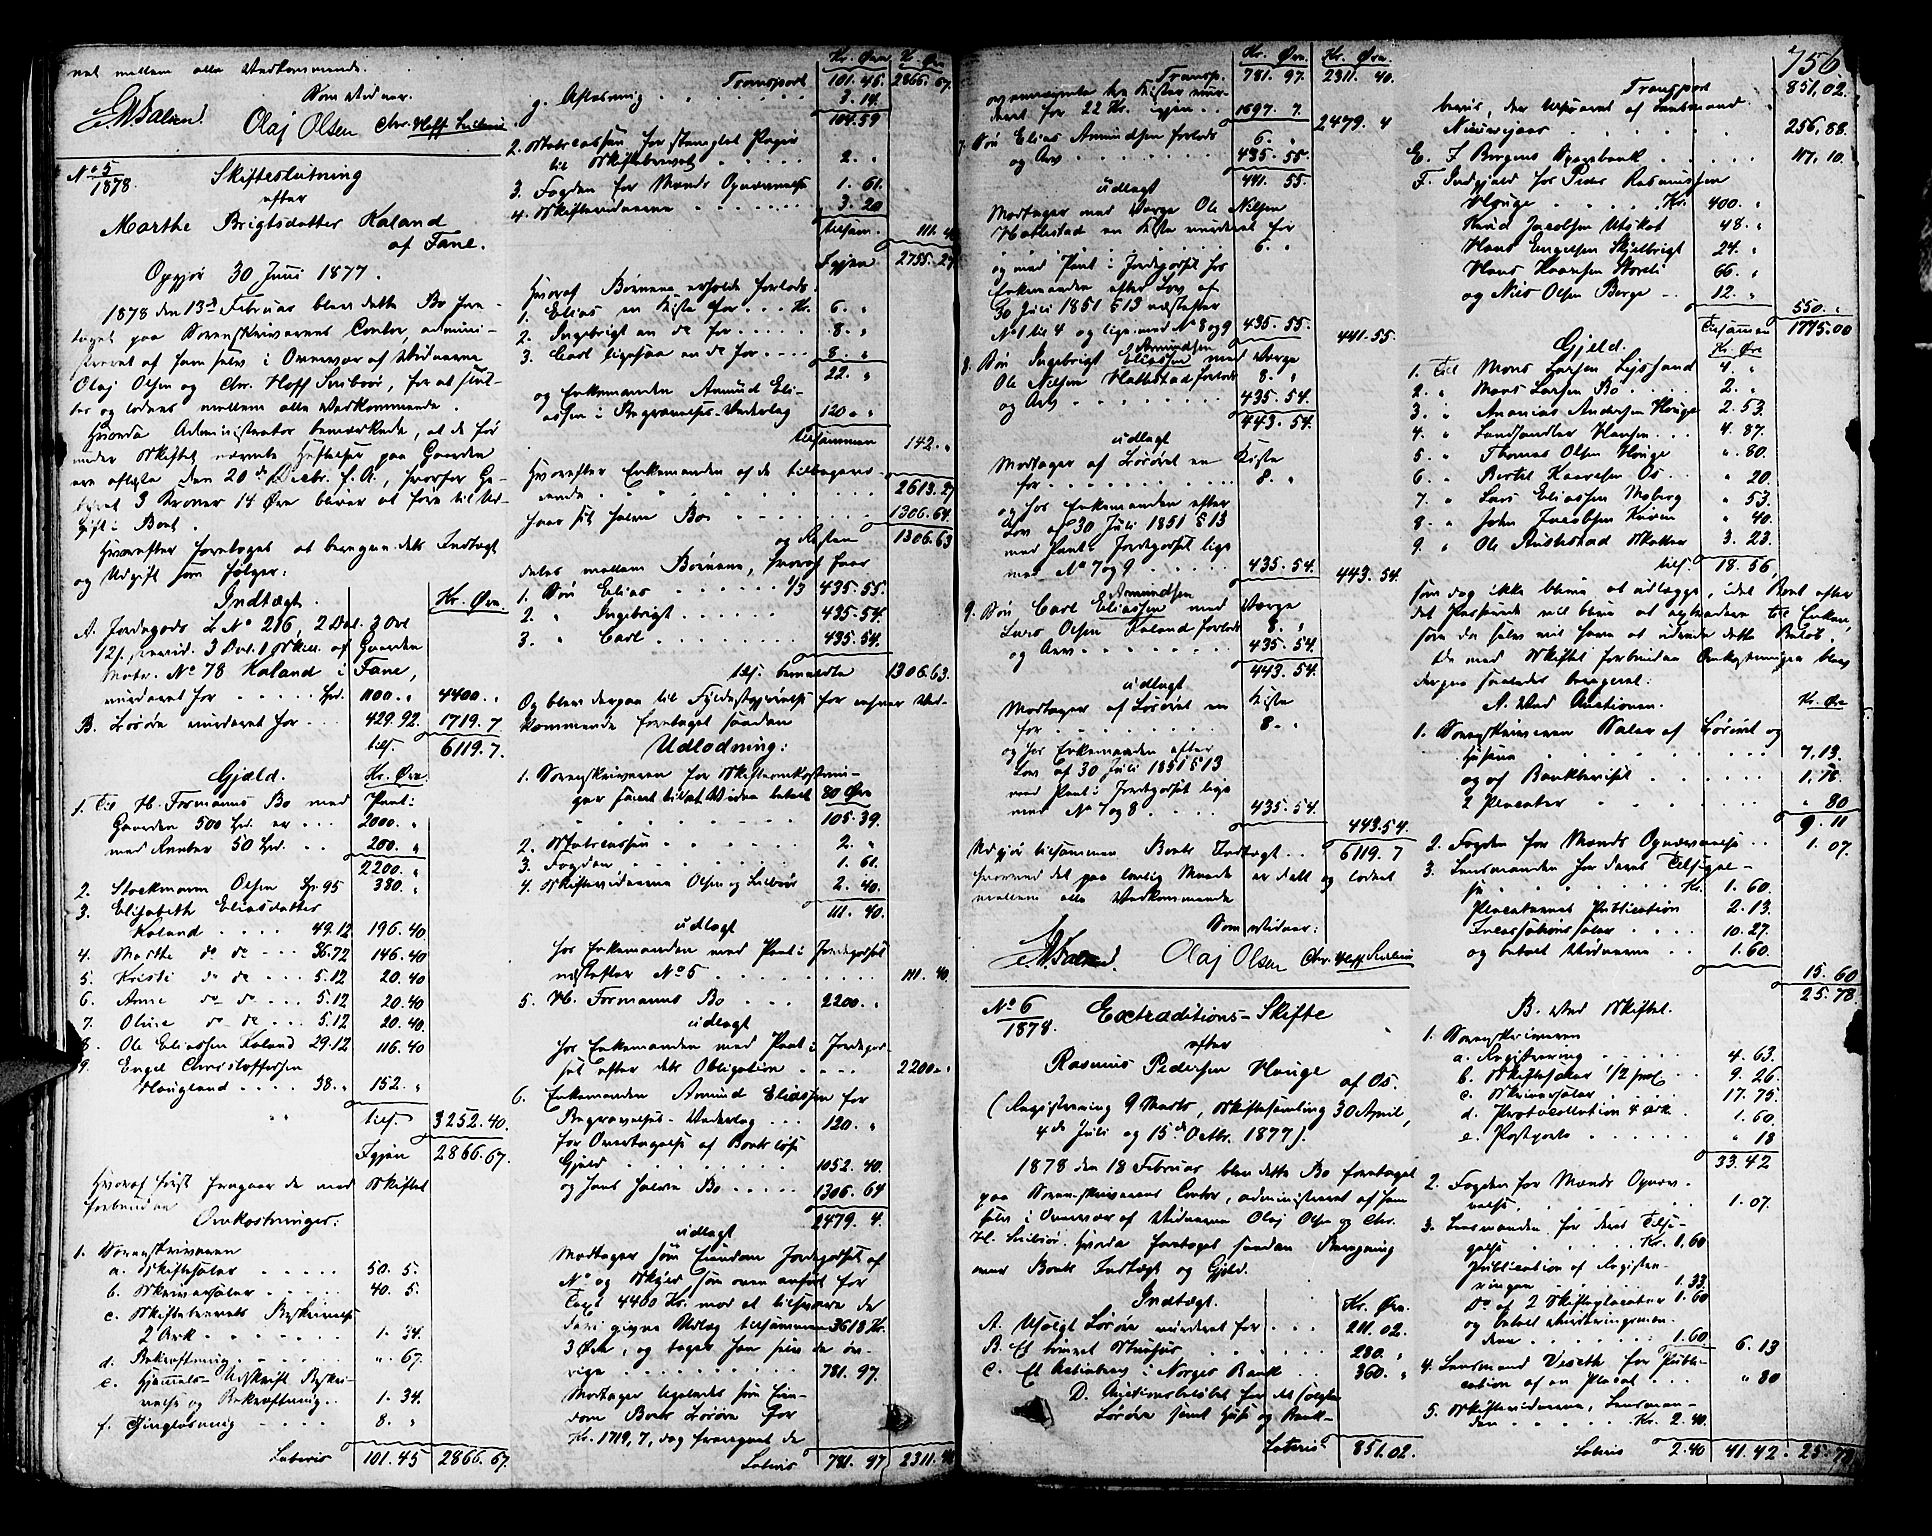 net mellem alle Vedkommende.
Som Vidner:
Olaj Olsen Chr. Hoff Seiboe
No 5
1878.
Skifteslutning
efter
Marthe Brigtsdatter Kaland
af Fane.
Opgjør 30 Juni 1877.
1878 den 13de Februar blev dette Bo fore-
taget paa Sorenskriverens Contor, admini-
streret af ham selv i Overvær af Vidnerne
Olaj Olsen og Chr. Hoff Seiboe, for at slut-
tes og loddes mellem alle Vedkommende.
Hvorda Administrator bemærkede, at de før
under Skiftet nævnte Heftelser paa Gaarden
ere aflæste den 20de Decbr. f. A., hvorfor Ge-
byret 3 Kroner 14 Øre bliver at føre til Ud-
gift i Boet.
Hvorefter foretoges at beregne dets Indtægt
og Udgift som følger:
Indtægt.
Kr. Øre.
A. Jordegods L. No 216, 2 Dal. 3 Ort
12 s., revid. 3 Dal. 1 Skill. af Gaarden
Matr. No 78 Kaland i Fane,
vurderet for . . . Spd. 1100. " 4400. "
B. Løsøre vurderet for . . . 429.92. 1719.7
tils. 6119.7.
Gjæld.
Kr. Øre.
1. Til H. Formanns Bo med Pant i
Gaarden 500 Spd. er . . . 2000. "
med Renter 50 Spd. . . 200. "
2200. "
2. Stockmann Olsen Sp. 95 380. "
3. Elisabeth Eliasdatter
Kaland . . . . 49.12 196.40
4. Marthe do do . . . 36.72 146.40
5. Kristi do do . . . 5.12 20.40
6. Anne do do . . . 5.12 20.40
7. Oline do do . . . 5.12 20.40
8. Ole Eliassen Kaland 29.12 116.40
9. Engel Christoffersen
Haugland . . . . 38. " 152. "
tils. 3252.40.
Igjen 2866.67.
Hvoraf først fragaar de med Skiftet
forbundne
Omkostninger:
1. Sorenskriveren
a. Skiftesalær . . . . . 50. 5.
b. Skriversalær . . . . . 40. 5.
c. Skiftebrevets Beskrivelse
2 Ark . . . . . 1. 34.
d. Bekræftning . . . . ". 67.
e. Hjemmels-Udskrift Beskri-
velse og Bekræftning . . 1. 34.
f. Thinglæsning . . . . 8. "
Lateris 101.45 2866.67.
Kr. Øre. Kr. Øre
Transport 101.45. 2866.67.
g. Aflæsning . . . . . 3.14.
104.59
2. Statscassen for stemplet Papir
til Skiftebrevet . . . . . 2. "
3. Fogden for Mænds Opnævnelse 1. 61.
4. Skiftevidnerne . . . . . 3. 20
tilsam. 111. 40
Igjen 2755. 27
Hvoraf Børnene erholde forlods:
1. Elias en Kiste for . . . Kr. 6. "
2. Ingebrigt en do for . . . . 8. "
3. Carl ligesaa en do for . . . . 8. "
22. "
og Enkemanden Amund Eli-
assen i Begravelses-Vederlag 120. "
tilsammen 142. "
Hvorefter Enkemanden af de tilbagevæ-
rende . . . . . 2613.27
faar sit halve Bo . . . . . 1306.64.
og Resten 1306.63
deles mellem Børnene, hvoraf faar
1. Søn Elias . . . . . 1/3 435.55.
2. " Ingebrigt . . . . . 435.54.
3. " Carl . . . . . 435.54.
tils. bemeldte 1306.63.
Og blev derpaa til Fyldestgjørelse for enhver Ved-
kommende foretaget saadan
Udlodning:
1. Sorenskriveren for Skifteomkostnin-
ger samt til et Vidne betalt 80 Øre
105.39.
2. Statscassen . . . . . 2. "
3. Fogden . . . . . 1. 61.
4. Skiftevidnerne Olsen og Seiboe 2. 40.
111. 40.
udlagt
hos Enkemanden med Pant i Jordegodset
næstefter No 5 . . . . . 111. 40.
5. H. Formanns Bo . . . 2200. "
udlagt
hos Enkemanden med Pant i Jordegod-
set efter dets Obligation . . . . 2200. "
6. Enkemanden Amund Eliassen for
Begravelses-Vederlag . . . 120. "
for Overtagelse af Boets løse
Gjæld . . . . . 1052. 40.
og hans halve Bo . . . . . 1306. 64
2479. 4.
udlagt
Modtager som Eiendom Jordegodset af
No og Skyld som oven anført for
Taxt 4400 Kr. mod at tilsvare de
deri givne Udlæg tilsammen 3618 Kr.
3 Øre, og tager han selv de øv-
rige . . . . . 781. 97.
Modtager ligeledes som Eien-
dom Boets Løsøre for
Kr. 1719,7, dog fraregnet de
Lateris 781. 97 2311. 40
Kr. Øre. Kr. Øre.
Transp. 781. 97. 2311. 40.
ovennævnte tre Kister vur-
deret for 22 Kr. igjen . . 1697. 7.
2479. 4
7. Søn Elias Amundsen forlods 6. "
og Arv . . . . . 435. 55.
441. 55.
udlagt
Modtager med Værge Ole Nilsen
Hattestad en Kiste vurderet for
. . . . . 6. "
og med Pant i Jordegodset hos
Enkemanden efter Lov af
30 Juli 1851 § 13 næstefter
No 1 til 4 og lige med No 8 og 9 435. 55.
441. 55.
8. Søn Ingebrigt Eliassen Amundsen med Værge
Ole Nilsen Hattestad forlods 8. "
og Arv . . . . . 435. 54.
443. 54.
udlagt
Modtager af Løsøret en Kiste
for . . . . . 8. "
og hos Enkemanden efter
Lov af 30 Juli 1851 § 13
med Pant i Jordegodset lige
med No 7 og 9 . . . . . 435. 54.
443. 54.
9. Søn Carl Eliassen Amundsen med Værge
Lars Olsen Kaland forlods 8. "
og Arv . . . . . 435. 54.
443. 54.
udlagt
Modtager af Løsøret en Kiste
for . . . . . 8. "
og hos Enkemanden efter
Lov af 30 Juli 1851 § 13
med Pant i Jordegodset lige
med No 7 og 8 . . . . 435. 54.
443.54.
Udgjør tilsammen Boets Indtægt . . 6119. 7
hvormed det paa lovlig Maade er delt og loddet
mellem alle Vedkommende
Som Vidner:
Olaj Olsen Chr. Hoff Seiboe
No 6
1878.
Extraditions-Skifte
efter
Rasmus Pedersen Houge af Os.
(Registrering 9 Marts, Skiftesamling 30 April,
4de Juli og 15de Octbr. 1877).
1878 den 18 Februar blev dette Bo foretaget
paa Sorenskriverens Contor, administreret af ham
selv i Overvær af Vidnerne Olaj Olsen og Chr.
H. Seiboe. Hvorda foretoges saadan Beregning
over Boets Indtægt og Gjæld.
Indtægt.
Kr. Øre.
A. Usolgt Løsøre vurderet for . . . 211. 02.
B. Et 280. "
C. Et i Norges Bank . . . 360. "
D. Auctionsbeløbet for det solgte
Løsøre samt Huse og Bank-
Lateris 851.02.
756
Transport 851. 02.
bevis, der
. . . . . 256. 88.
E. I Bergens Sparebank . . . . . 117. 10.
F. Indgjeld hos Peder Rasmussen
Houge . . . . . Kr. 400. "
Knud Jacobsen Utskot 48. "
Hans Engelsen Skjelbrigt 24. "
Hans Haavsen Storeli 66. "
og Nils Olsen Berge . . 12. "
550. "
Tilsammen 1775.00
Gjeld.
Kr Øre
1. Til Mons Larsen Lyssand 4. "
2. " Mons Larsen Bø . . . 2. "
3. " Ananias Andersen Houge 2. 53.
4. " Landhandler Hansen . . . 4. 87.
5. " Thomas Olsen Houge ". 80.
6. " Bertel Haavsen Os . . " 20.
7. " Lars Eliassen Moberg " 53.
8. " John Jacobsen " 40.
9. " Ole Austestad 3. 23.
tils. 18. 56,
som dog ikke blive at udlægge, idet Boet efter
det Passerede vil blive at extradere til Enken,
som da selv vil have at udrede dette Beløb.
De med Skiftet forbundne Omkostninger blev
derpaa saaledes beregnet:
A. Ved Auctionen.
Kr. Øre
1. Sorenskriveren Salær af Løsøret og
Husene . . . . . 7. 13.
og af Bankbeviset . . . . . 1. 18.
2 Placater . . . . . " 80
9. 11
2. Fogden for Mænds Opnævnelse . . 1. 07.
3. Lensmanden for deres Tilsigel-
se . . . . . Kr. 1. 60.
Placaternes Publication 2. 13.
Incassationssalær . . . . 10. 27.
og betalt Vidnerne . . . 1. 60.
15. 60
25. 78.
B. Ved Skiftet.
1. Sorenskriveren
a. Registrering . . . . . 4. 63.
b. Skiftesalær 1/2 pct. . . 9. 26
c. Skriversalær . . . . . 17. 75.
d. Protocollation 4 Ark . . . 1. 60.
e. Postporto . . . . . " 18
33. 42
2. Fogden for Mænds Opnæv-
nelse . . . . . 1. 07.
3. Lensmanden for deres Tilsi-
gelse . . . . . Kr. 1.60
Publication af Registre-
ringen . . . . . 1.33.
do af 2 Skifteplacater 1.60
og betalt Vurderingsmæn-
dene . . . . . 1.60 6. 13
4. Lensmand Veseth for Publi-
cation af en Placat . . . " 80
5. Skiftevidnerne, Lensman-
den . . . . . Kr. 2.40.
Lateris 2.40 41.42. 25.78